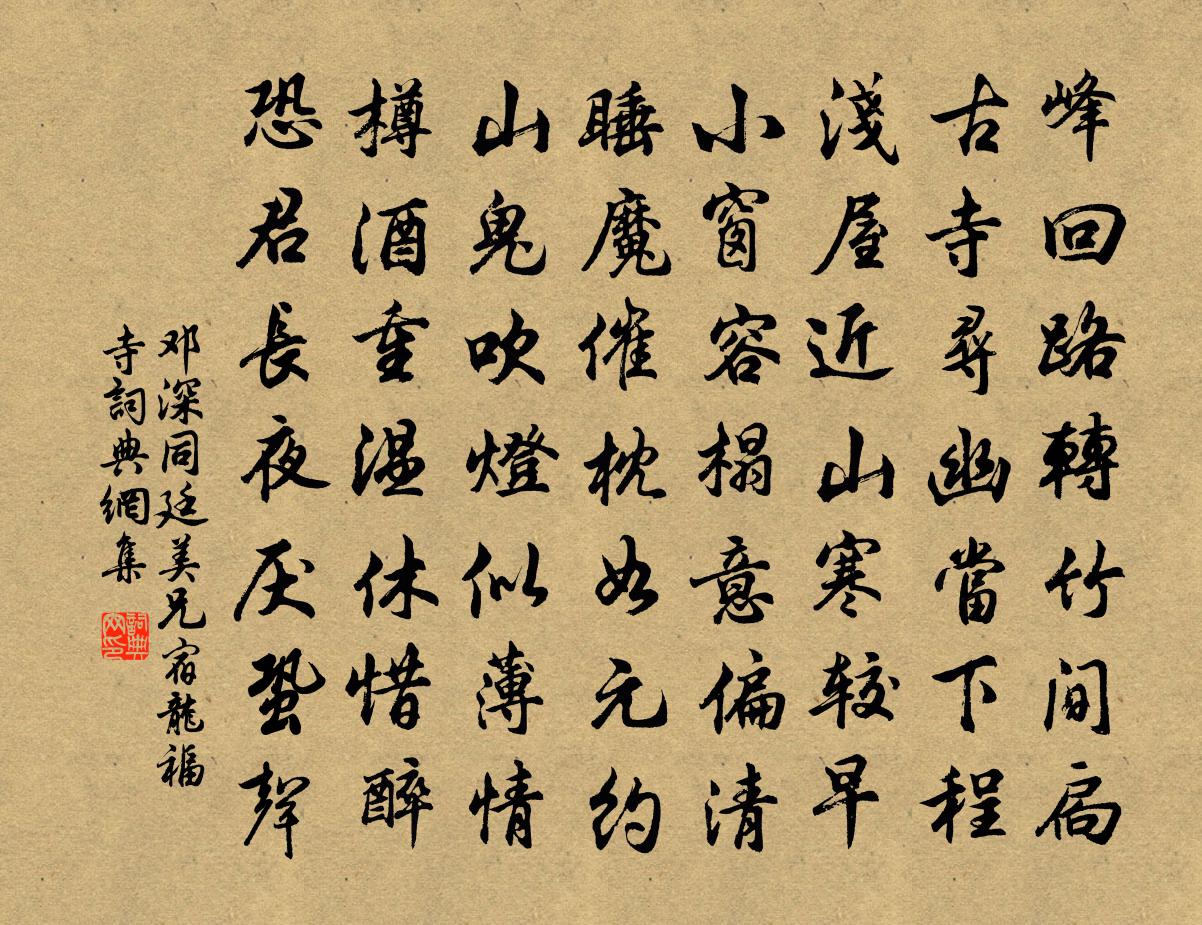 峰回路轉竹間扃
古寺尋幽當下程
淺屋近山寒较早
小窗容榻意偏清
睡魔催枕如元約
山鬼吹燈似薄情
樽酒重温休惜醉
恐君長夜厌蛩聲
邓深同廷美兄宿龍福
寺詞典網集
詞典
网印